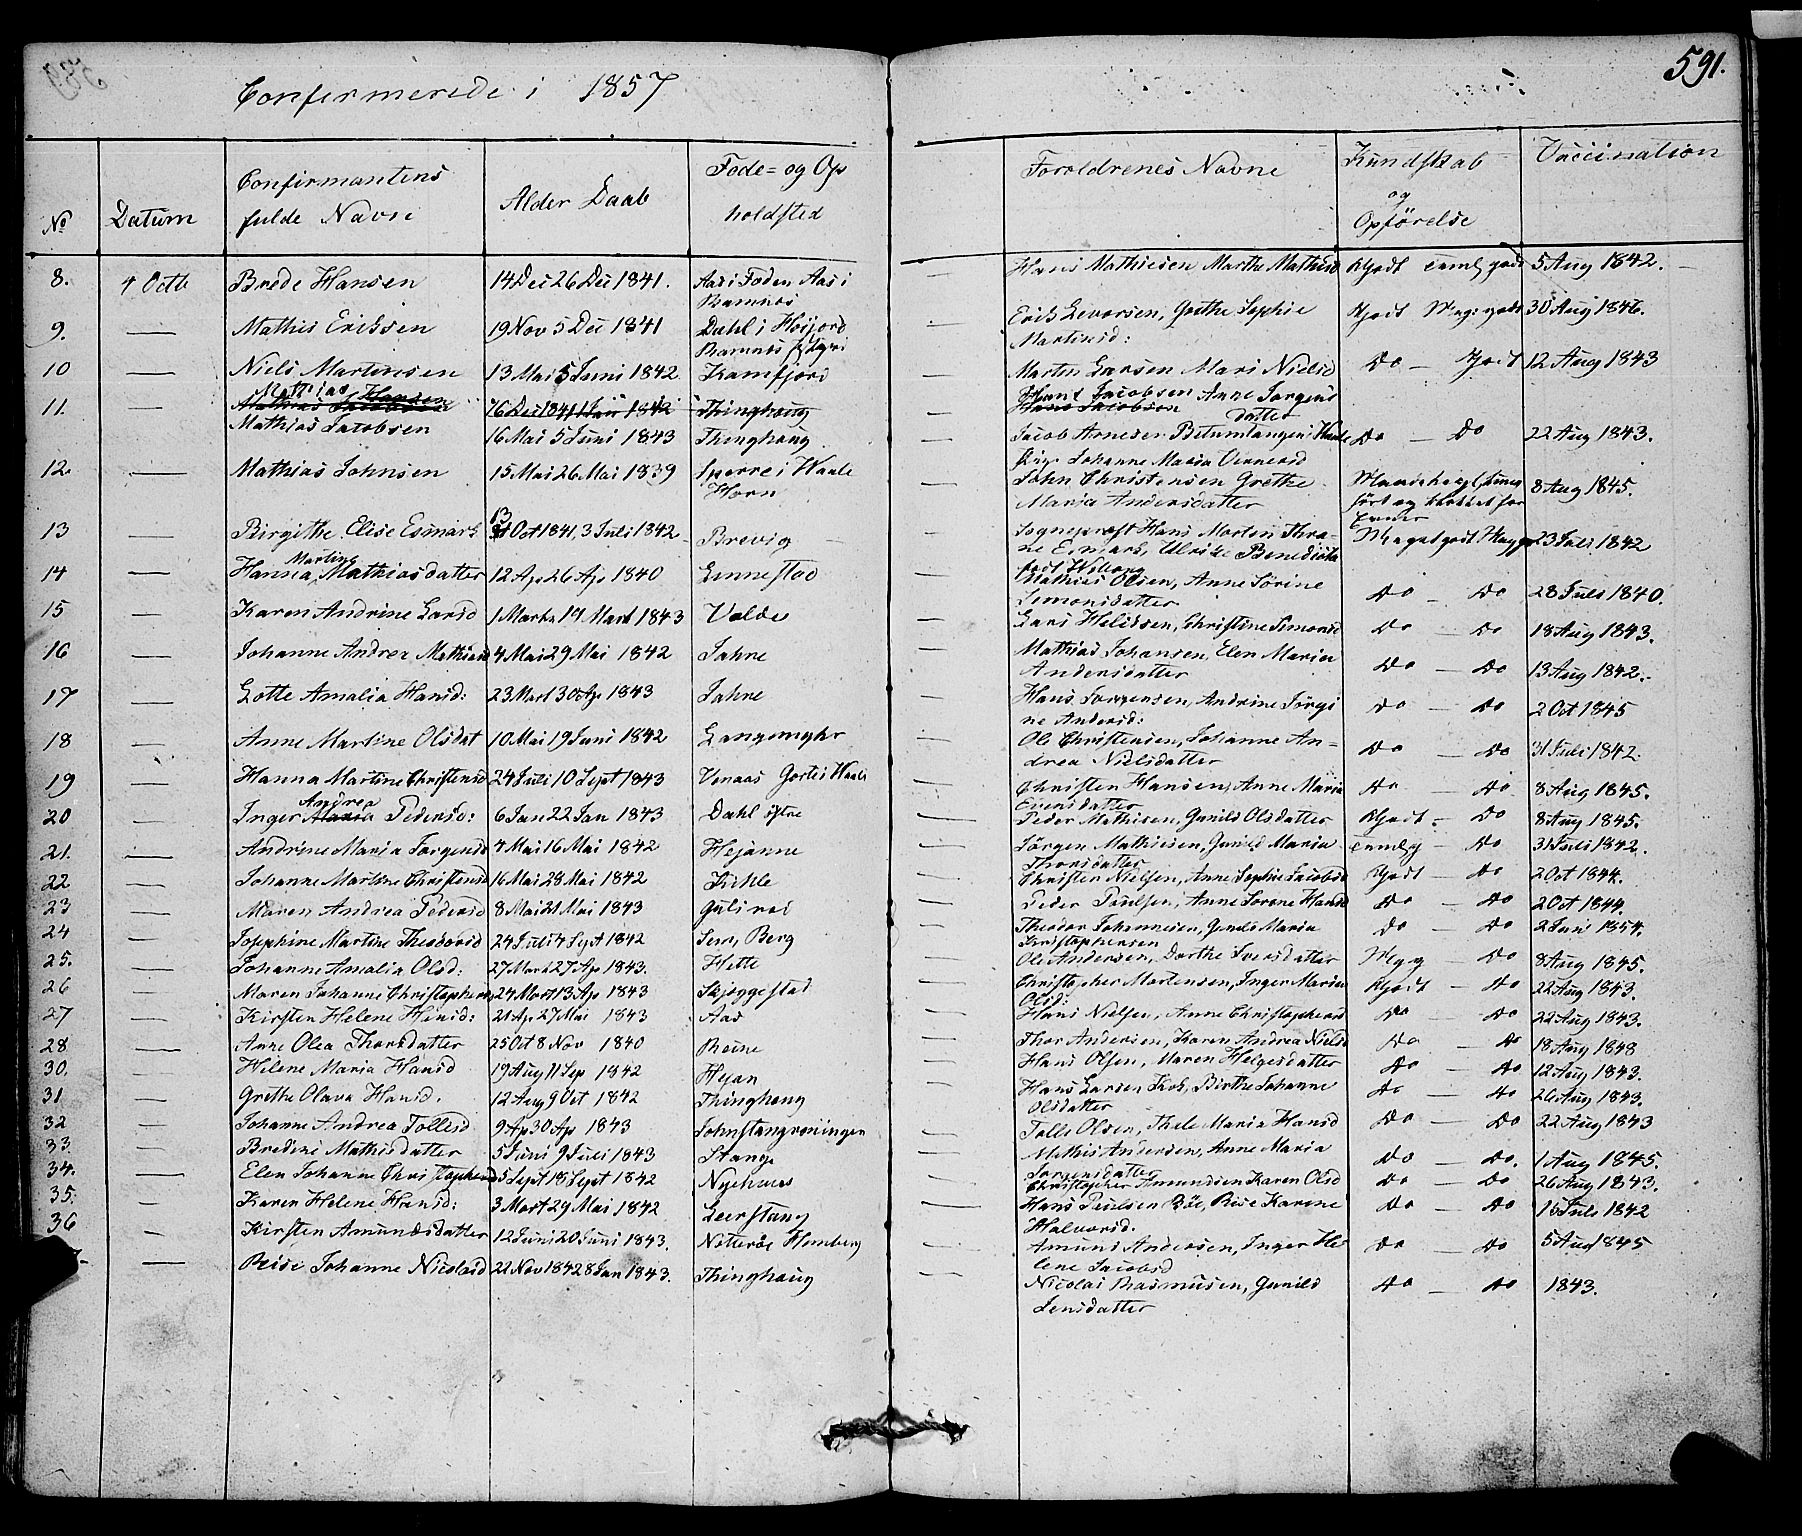 591.
Confirmerede i 1857
No Datum Confirmantens fulde Navn Alder Daab Føde= og Opholdsted Forældrenes Navne Kundskab og Opførelse Vaccination
8. 4 Octb Brede Hansen 14 Dec 26 Dec 1841. Aas i Foden Aas i Ramnes — Hans Mathiesen Marthe Mathisd Godt temlig godt 5 Aug 1842.
9. — Mathis Eriksen 19 Nov 5 Dec 1841 Dahl i Høijord Ramnes — Erik Evorsen, Grethe Sophie Martinsd: Godt Meg: godt 30 Aug 1846.
10 — Niels Martinsen 13 Mai 5 Juni 1842 Kamfjord — Martin Larsen Mari Nielsd Do — Godt 12 Aug 1843
11. — Mathias Hansen Mathias Jacobsen 26 Dec 1841 1 Jan 1842 Thinghaug Hans Jacobsen Anne Jørgens datter Hans Jacobsen
Mathias Jacobsen 16 Mai 5 Juni 1843 Thinghaug — Jacob Arnesen Bitumlangen i Waale Pige Johanne Maria Do — Do 22 Aug 1843.
12. — Mathias Johnsen 15 Mai 26 Mai 1839 Sperre i Waale Horn — John Christensen Grethe Maria Andersdatter 8 Aug 1845.
13 — Birgithe Elise Esmark 13 Oct 1841 3 Juli 1842 Brevig — Sogneprest Hans Morten Thrane Esmark, Ulrikke Benedicta født Wiborg Meget godt Meg go 23 Juli 1842
14 — Hanna Martine Mathiasdatter 12 Ap 26 Ap 1840 Linnestad — Mathias Olsen, Anne Sørine Simonsdatter Do — Do 28 Juli 1840.
15 — Karen Andrine Larsd 1 Marts 19 Mart 1843 Valde — Lars Helidsen, Christine Simonsd Do — Do 18 Aug 1843.
16 — Johanne Andrea Mathiasd 4 Mai 29 Mai 1842 Jahne — Mathias Johansen, Elen Maria Andersdatter Do — Do 13 Aug 1842.
17 — Lotte Amalia Hansd: 23 Mart 30 Ap 1843 Jahne — Hans Jørgensen, Andrine Jørgine Andersd: Do — Do 2 Oct 1845
18 — Anne Martine Olsdat 10 Mai 19 Juni 1842 Langemyhr — Ole Christensen, Johanne Andrea Nielsdatter Do — Do 31 Juli 1842.
19 — Hanna Martine Christensd 24 Juli 10 Sept 1843 Venaas Gorter i Waale — Christen Hansen, Anne Maria Evensdatter Do — Do 8 Aug 1845.
20 — Inger Andrea Maria Pedersd: 6 Jan 22 Jan 1843 Dahl østre — Peder Mathisen, Gunild Olsdatter Godt — Do 8 Aug 1845.
21. — Andrine Maria Jørgensd 4 Mai 16 Mai 1842 Hejanne — Jørgen Mathiesen, Gunild Maria Thorsdatter temlig — Do 31 Juli 1842.
22 — Johanne Martine Christensd 16 Mai 28 Mai 1842 Fuhle — Christen Nielsen, Anne Sophie Jacobsd Godt — Do 2 Oct 1844.
23 — Maren Andrea Pedersd 8 Mai 21 Mai 1843 Gulirød — Peder Paulsen, Anne Sørine Hansd Do — Do 2 Oct 1844.
24 — Josephine Martine Theodorsd 24 Juli 4 Sept 1842 Sem, Berg — Theodor Johannesen, Gunild Maria Kristophersen Do — Do 2 Juni 1854.
25. — Johanne Amalia Olsd: 27 Mart 27 Ap 1843. Hette — Ole Andersen, Dorthe Iversdatter Meg g — Do 8 Aug 1845.
26 — Maren Johanne Christophersd 24 Mart 13 Ap 1843 Skjeggestad — Christopher Mortensen, Inger Maria Olsd: Godt — Do 22 Aug 1843.
27 — Kirsten Helene Hansd: 21 Ap 27 Mai 1843 Aas — Hans Nielsen, Anne Christophersd Do — Do 22 Aug 1843.
28 — Anne Olea Thorsdatter 25 Oct 8 Nov 1840 Reine — Thor Andersen, Karen Andrea Nielsd Do — Do 18 Aug 1848
30. — Helene Maria Hansd 19 Aug 11 Sep 1842 Hejan — Hans Olsen, Maren Helgesdatter Do — Do 12 Aug 1843.
31 — Grethe Olava Hansd. 12 Aug 9 Oct 1842 Thinghaug — Hans Larsen Kok, Birthe Johanne Olsdatter Do — Do 26 Aug 1843.
32 — Johanne Andrea Tollesd 9 Ap 30 Ap 1843 Johnstangrøningen — Tolle Olsen, Thele Maria Hansd Do — Do 22 Aug 1843
33. — Bredine Mathisdatter 5 Juni 9 Juli 1843 Stange — Mathis Andersen, Anne Maria Jørgensdatter Do — Do. 1 Aug 1845.
34. — Elen Johanne Christophersd 5 Sept 18 Sept 1842 Nyehuus — Christopher Amundsen Karen Olsd Do — Do 26 Aug 1843.
35. — Karen Helene Hansd: 3 Mart 29 Mai 1842 Leerstang — Hans Poulsen Bøe, Rise Karine Halvorsd. Do — Do 15 Juli 1842
36 — Kirsten Amundsdatter 12 Juni 20 Juni 1843. Nøtterøe Homberg — Amund Andersen, Inger Helene Jacobsd Do — Do 5 Aug 1845
— Reise Johanne Nicolaisd 22 Nov 1842 8 Jan 1843. Thinghaug — Nicolai Rasmussen, Gunild Jensdatter Do — Do 1843.